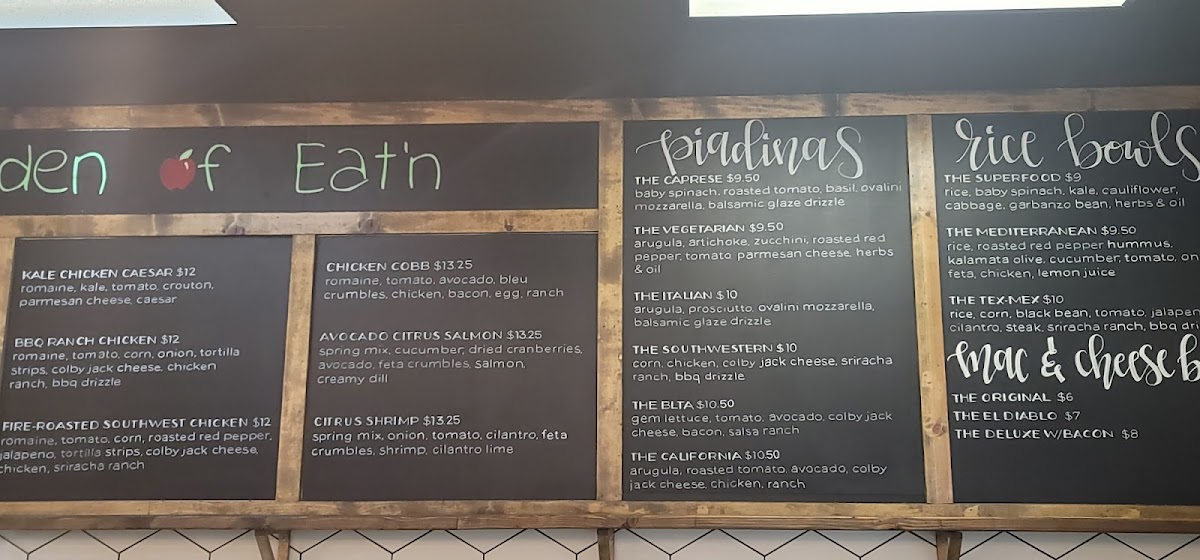 den of Eat'n
KALE CHICKEN CAESAR $12
romaine, kale, tomato, crouton,
parmesan cheese, caesar
BBQ RANCH CHICKEN $12
romaine, tomato, corn, onion, tortilla
strips, colby jack cheese, chicken
ranch, bbq drizzle
FIRE-ROASTED SOUTHWEST CHICKEN $12
romaine, tomato, corn, roasted red pepper,
jalapeno, tortilla strips, colby jack cheese,
chicken, sriracha ranch
CHICKEN COBB $13.25
romaine, tomato, avocado, bleu
crumbles, chicken, bacon, egg, ranch
AVOCADO CITRUS SALMON $13.25
spring mix, cucumber, dried cranberries,
avocado, feta crumbles, salmon,
creamy dill
CITRUS SHRIMP $13.25
spring mix, onion, tomato, cilantro, feta
crumbles, shrimp, cilantro lime
piadinas
THE CAPRESE $9.50
baby spinach, roasted tomato, basil, ovalini
mozzarella, balsamic glaze drizzle
THE VEGETARIAN $9.50
arugula, artichoke, zucchini, roasted red
pepper, tomato, parmesan cheese, herbs
& oil
THE ITALIAN $10
arugula, prosciutto, ovalini mozzarella,
balsamic glaze drizzle
THE SOUTHWESTERN $10
corn, chicken, colby jack cheese, sriracha
ranch, bbq drizzle
THE BLTA $10.50
gem lettuce, tomato, avocado, colby jack
cheese, bacon, salsa ranch
THE CALIFORNIA $10.50
arugula, roasted tomato, avocado, colby
jack cheese, chicken, ranch
rice bowls
THE SUPERFOOD $9
rice, baby spinach, kale, cauliflower,
cabbage, garbanzo bean, herbs & oil
THE MEDITERRANEAN $9.50
rice, roasted red pepper hummus,
kalamata olive, cucumber, tomato, on
feta, chicken, lemon juice
THE TEX-MEX $10
rice, corn, black bean, tomato, jalapen
cilantro, steak, sriracha ranch, bbq dri
mac & cheese b
THE ORIGINAL $6
THE EL DIABLO $7
THE DELUXE W/BACON $8